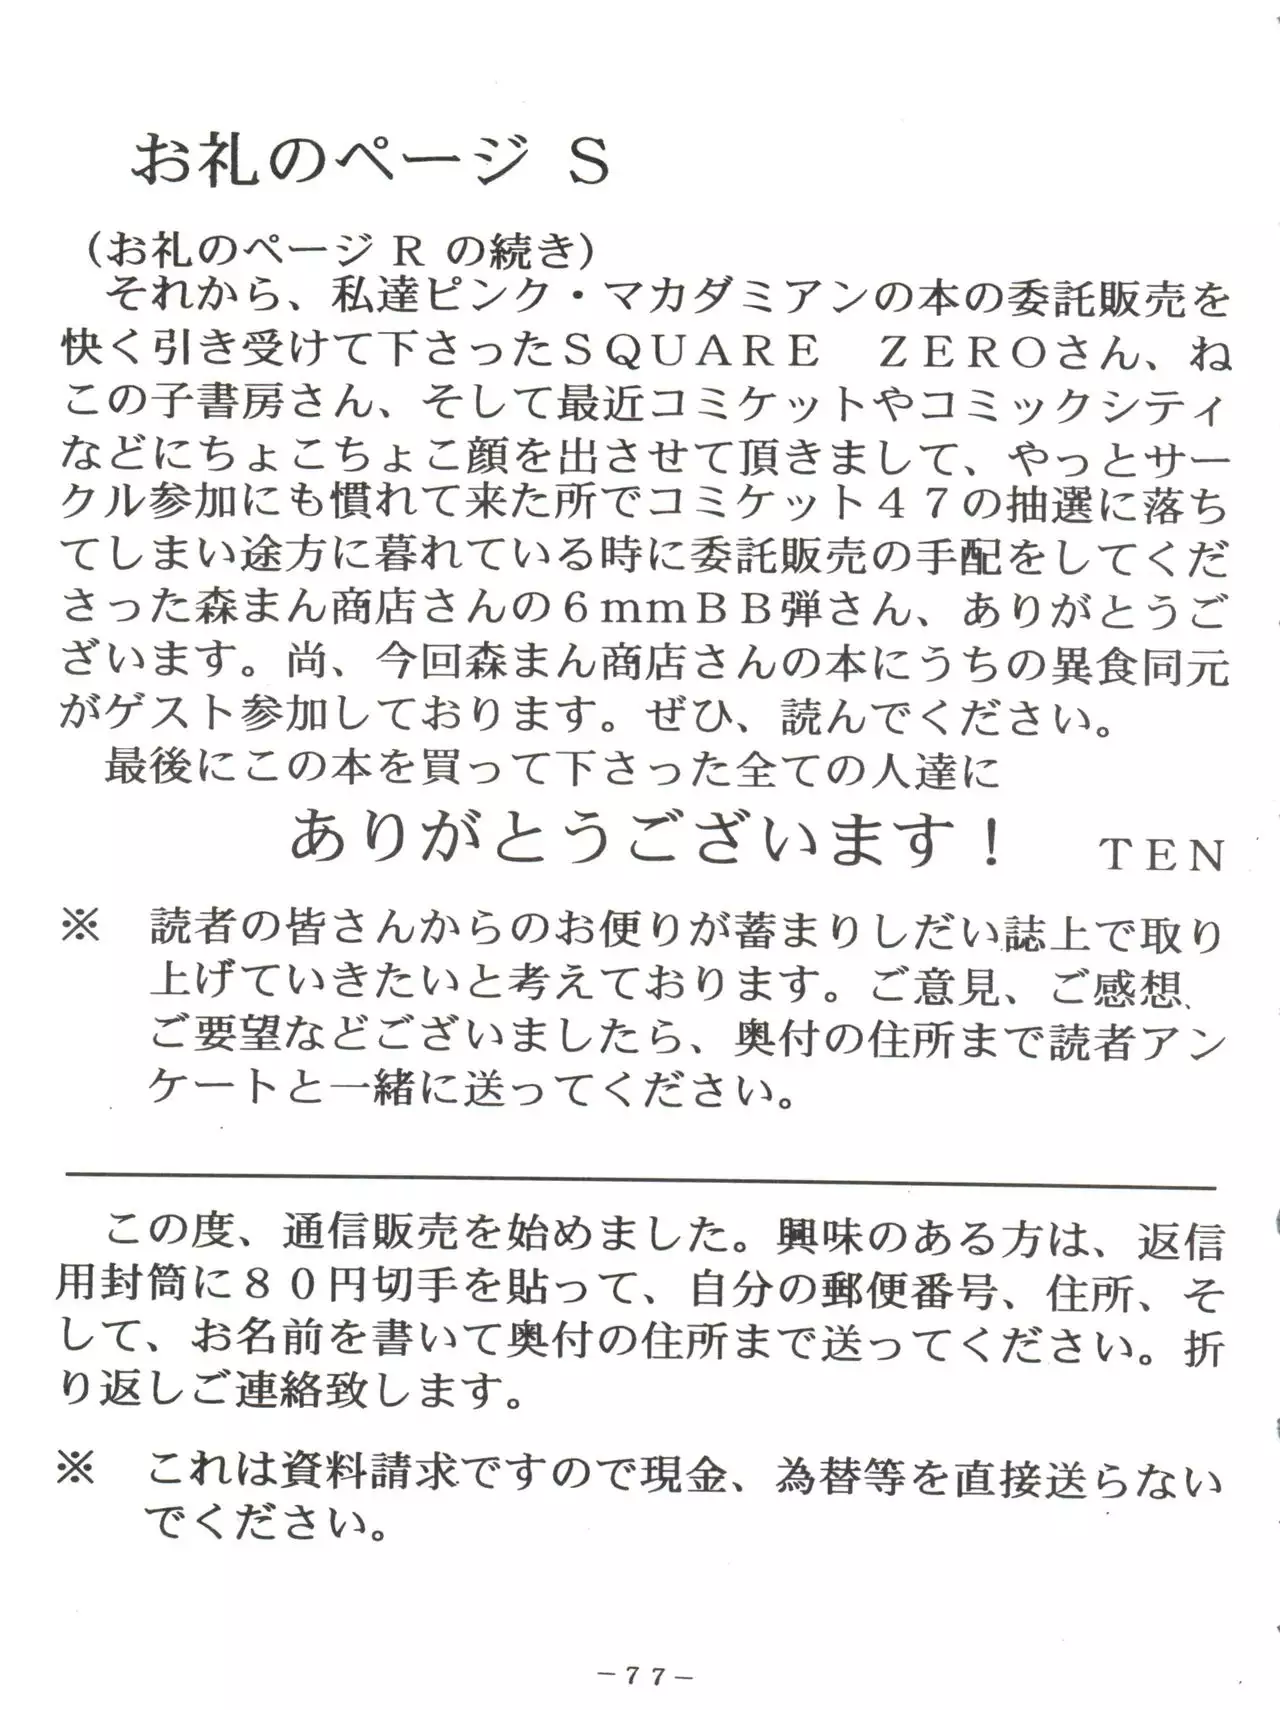 お礼のページ S
(お礼のページ R の続き)
それから、私達ピンク・マカダミアンの本の委託販売を
快く引き受けて下さったSQUARE ZEROさん、ね
この子書房さん、そして最近コミケットやコミックシティ
などにちょこちょこ顔を出させて頂きまして、やっとサー
クル参加にも慣れて来た所でコミケット47の抽選に落ち
てしまい途方に暮れている時に委託販売の手配をしてくだ
さった森まん商店さんの6mmBB弾さん、ありがとうご
ざいます。尚、今回森まん商店さんの本にうちの異食同元
がゲスト参加しております。ぜひ、読んでください。
最後にこの本を買って下さった全ての人達に
ありがとうございます!
TEN
※ 読者の皆さんからのお便りが蓄まりしだい誌上で取り
上げていきたいと考えております。ご意見、ご感想、
ご要望などございましたら、奥付の住所まで読者アン
ケートと一緒に送ってください。
この度、通信販売を始めました。興味のある方は、返信
用封筒に80円切手を貼って、自分の郵便番号、住所、そ
して、お名前を書いて奥付の住所まで送ってください。折
り返しご連絡致します。
※ これは資料請求ですので現金、為替等を直接送らない
でください。
-77-